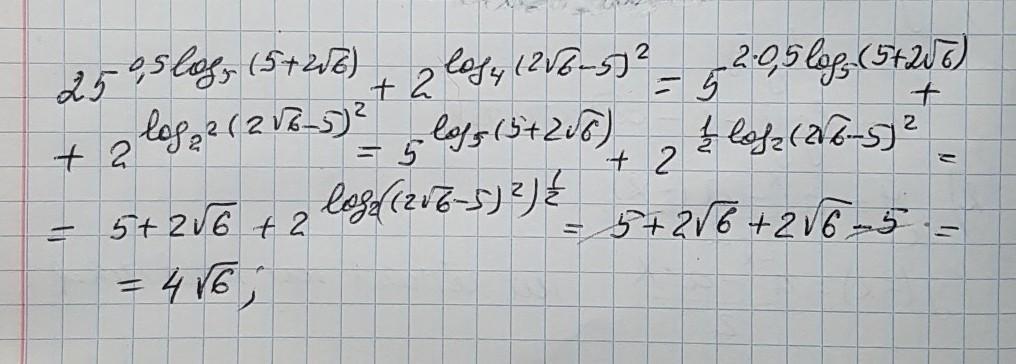 25^{0,5 log_5 (5+2√6)} + 2^{log_4 (2√6-5)^2} = 5^{2·0,5 log_5 (5+2√6)} +
+ 2^{log_{2^2} (2√6-5)^2} = 5^{log_5 (5+2√6)} + 2^{1/2 log_2 (2√6-5)^2} =
= 5+2√6 + 2^{log_2 ((2√6-5)^2)^{1/2}} = 5+2√6+2√6-5 =
= 4√6;